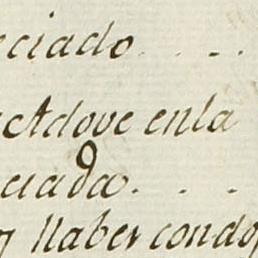 eciado. . . .
actdove enla
ciada. . . .
y llaber condo